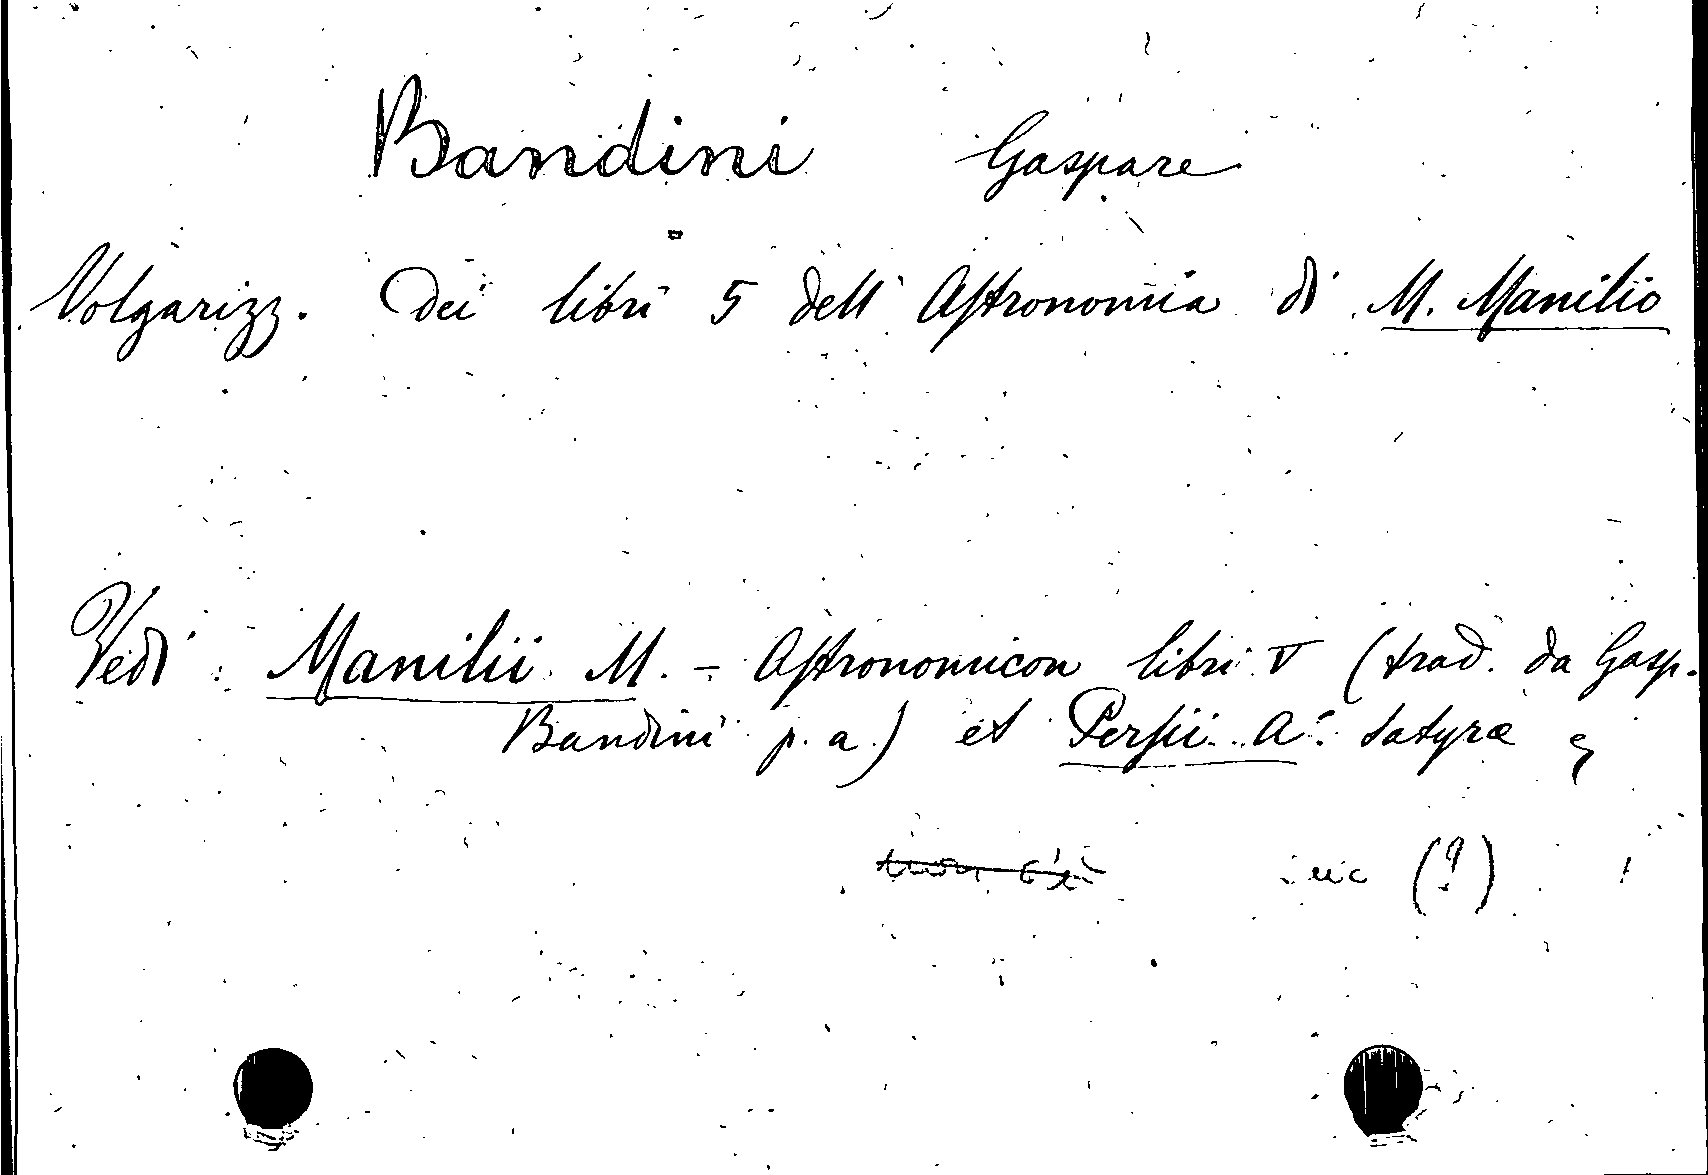 Bandini Gaspare
Volgarizz. Dei libri 5 dell' Astronomia di M. Manilio
Vedi: Manilii M. - Astronomicon libri V (trad. da Gasp.
Bandini p. a.) et Persii A. satyræ
(?)